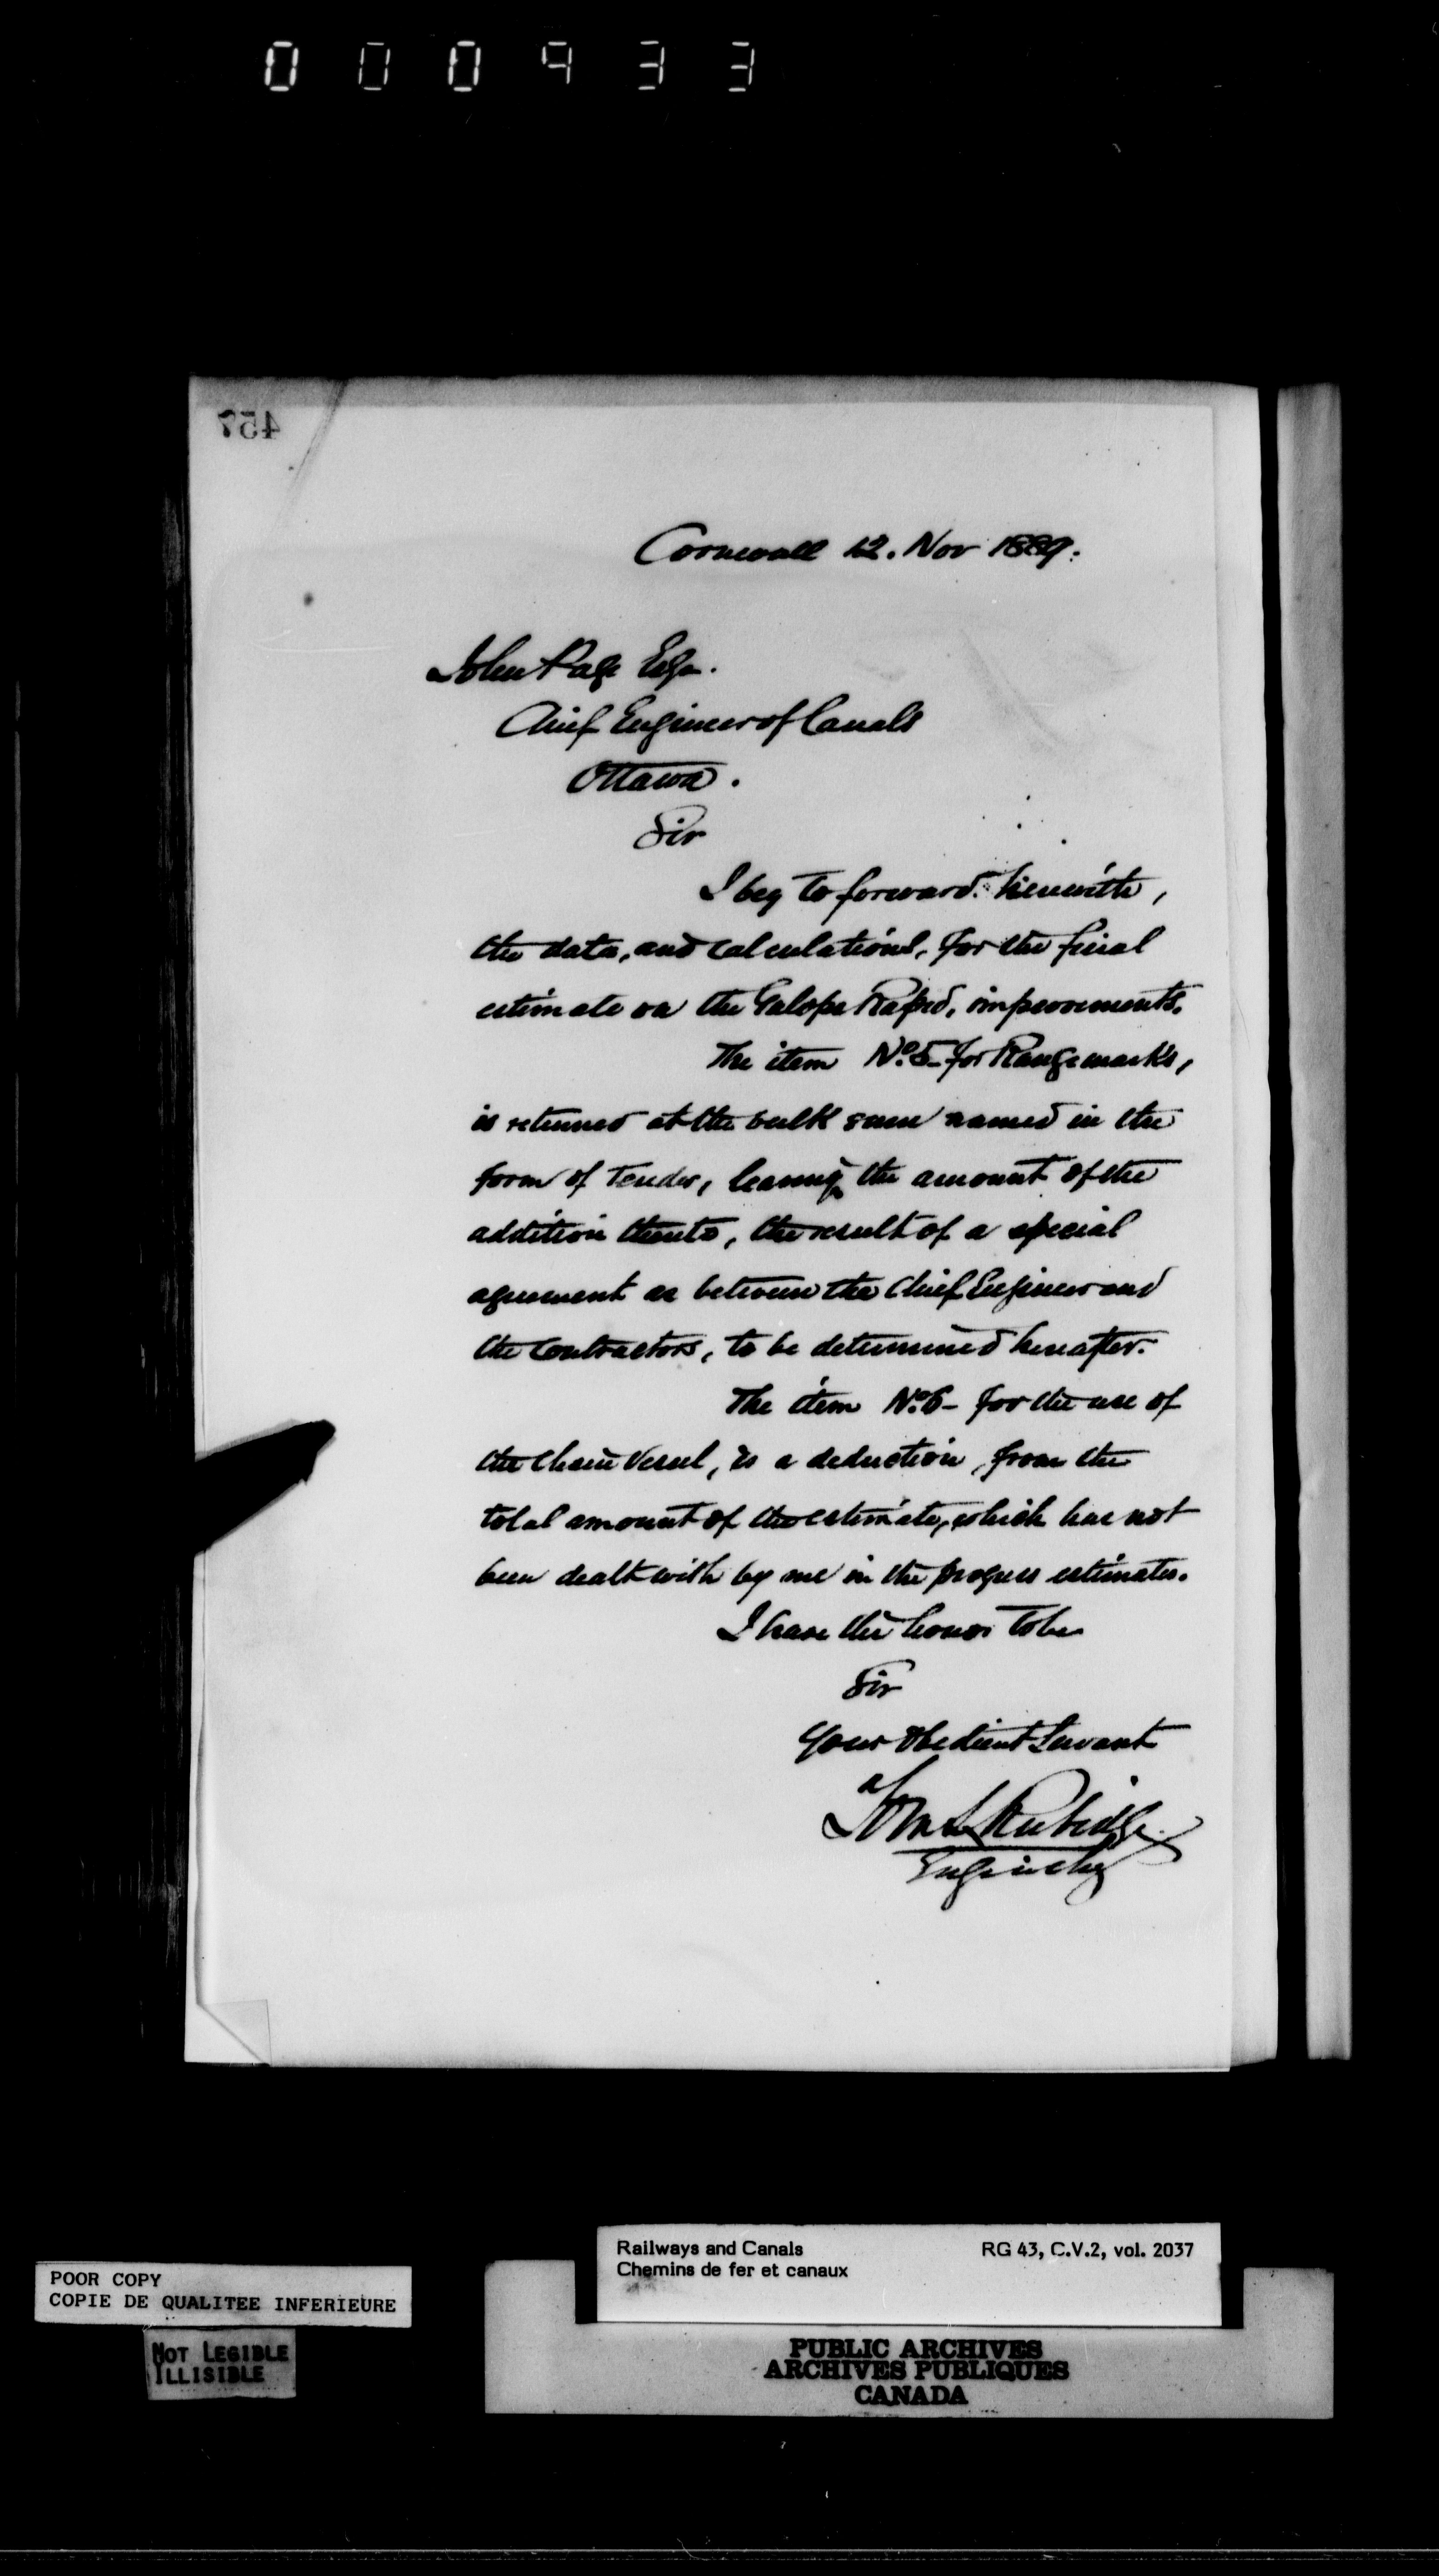 000933
457
Cornwall 12. Nov 1889.
John Page Esqr.
Chief Engineer of Canals
Ottawa.
Sir
I beg to forward herewith,
the data, and calculations, for the final
estimate on the Galops Rapid, improvements.
The item No. 5 - for Range marks,
is returned at the bulk sum named in the
form of Tender, leaving the amount of the
addition thereto, the result of a special
agreement as between the Chief Engineer and
the Contractors, to be determined hereafter.
The item No. 6 - for the use of
the Chain Vessel, is a deduction, from the
total amount of the estimate, which has not
been dealt with by me in the progress estimates.
I have the honor to be
Sir
Your Obedient Servant
Tom S Rubidge
Eng in chg
Railways and Canals RG 43, C.V.2, vol. 2037
Chemins de fer et canaux
POOR COPY
COPIE DE QUALITEE INFERIEURE
NOT LEGIBLE
ILLISIBLE
PUBLIC ARCHIVES
ARCHIVES PUBLIQUES
CANADA